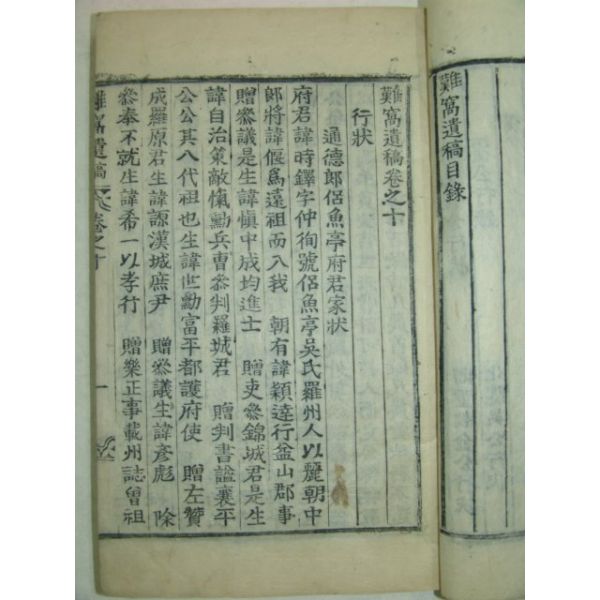 難窩遺稿目錄
難窩遺稿卷之十
行狀
通德郎侶魚亭府君家狀
府君諱時鐸字仲徇號侶魚亭吳氏羅州人以麗朝中
郎將諱偃爲遠祖而入我 朝有諱穎達行益山郡事
贈叅議是生諱愼中成均進士 贈吏叅錦城君是生
諱自治策敵愾勳兵曹叅判羅城君 贈判書謚襄平
公公其八代祖也生諱世勳富平都護府使 贈左贊
成羅原君生諱 漢城庶尹 贈叅議生諱彥彪 除
叅奉不就生諱希一以孝行 贈樂正事載州誌曾祖
難窩遺稿 卷之十 一